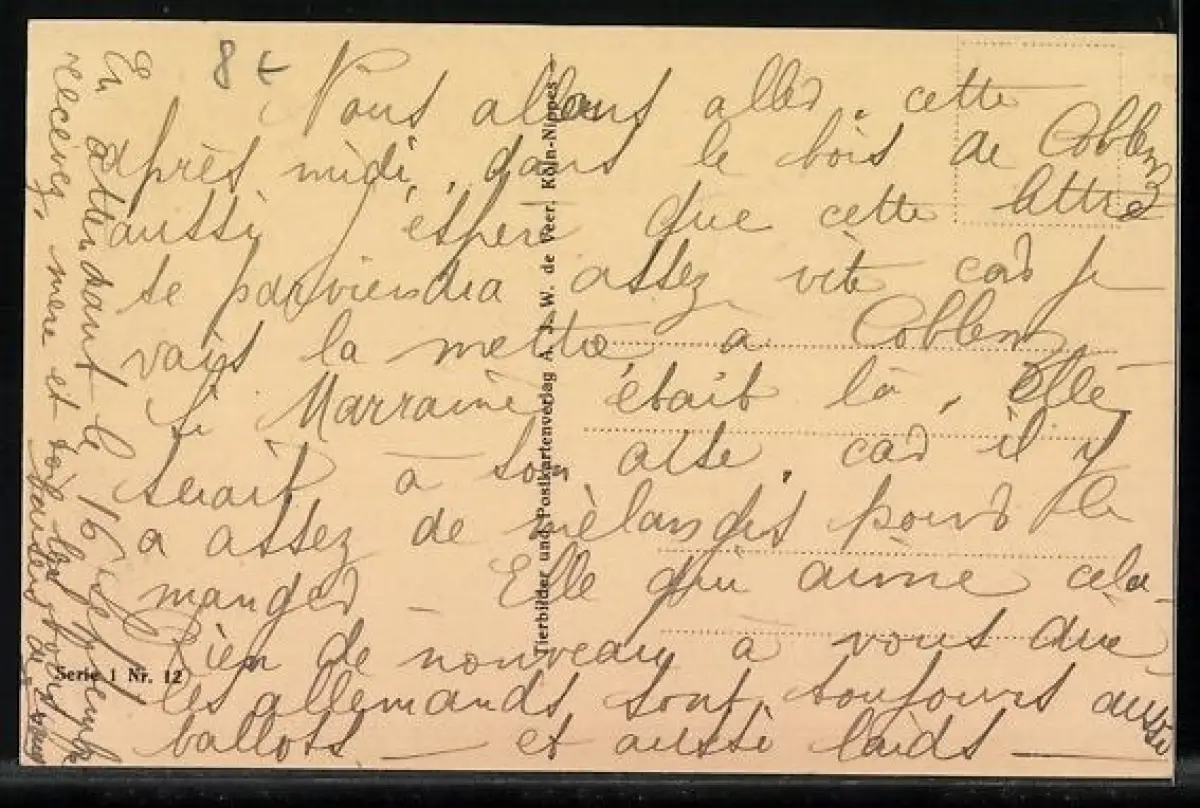 8
Nous allons aller, cette
après midi, dans le bois de Coblenz
aussi j'espère que cette lettre
te parviendra assez vite car je
vais la mettre a Coblenz
Si Marraine était là, elle
serait à son aise, car il y
a assez de mélanges pour le
manger – Elle qui aime cela –
Rien de nouveau a vous dire
les allemands sont toujours aussi
ballots – et aussi laids –
En attendant le 16 septembre
recevez, mère et toi les
Tierbilder und Postkartenverlag A. J. W. de Veer. Köln-Nippes
Serie 1 Nr. 12